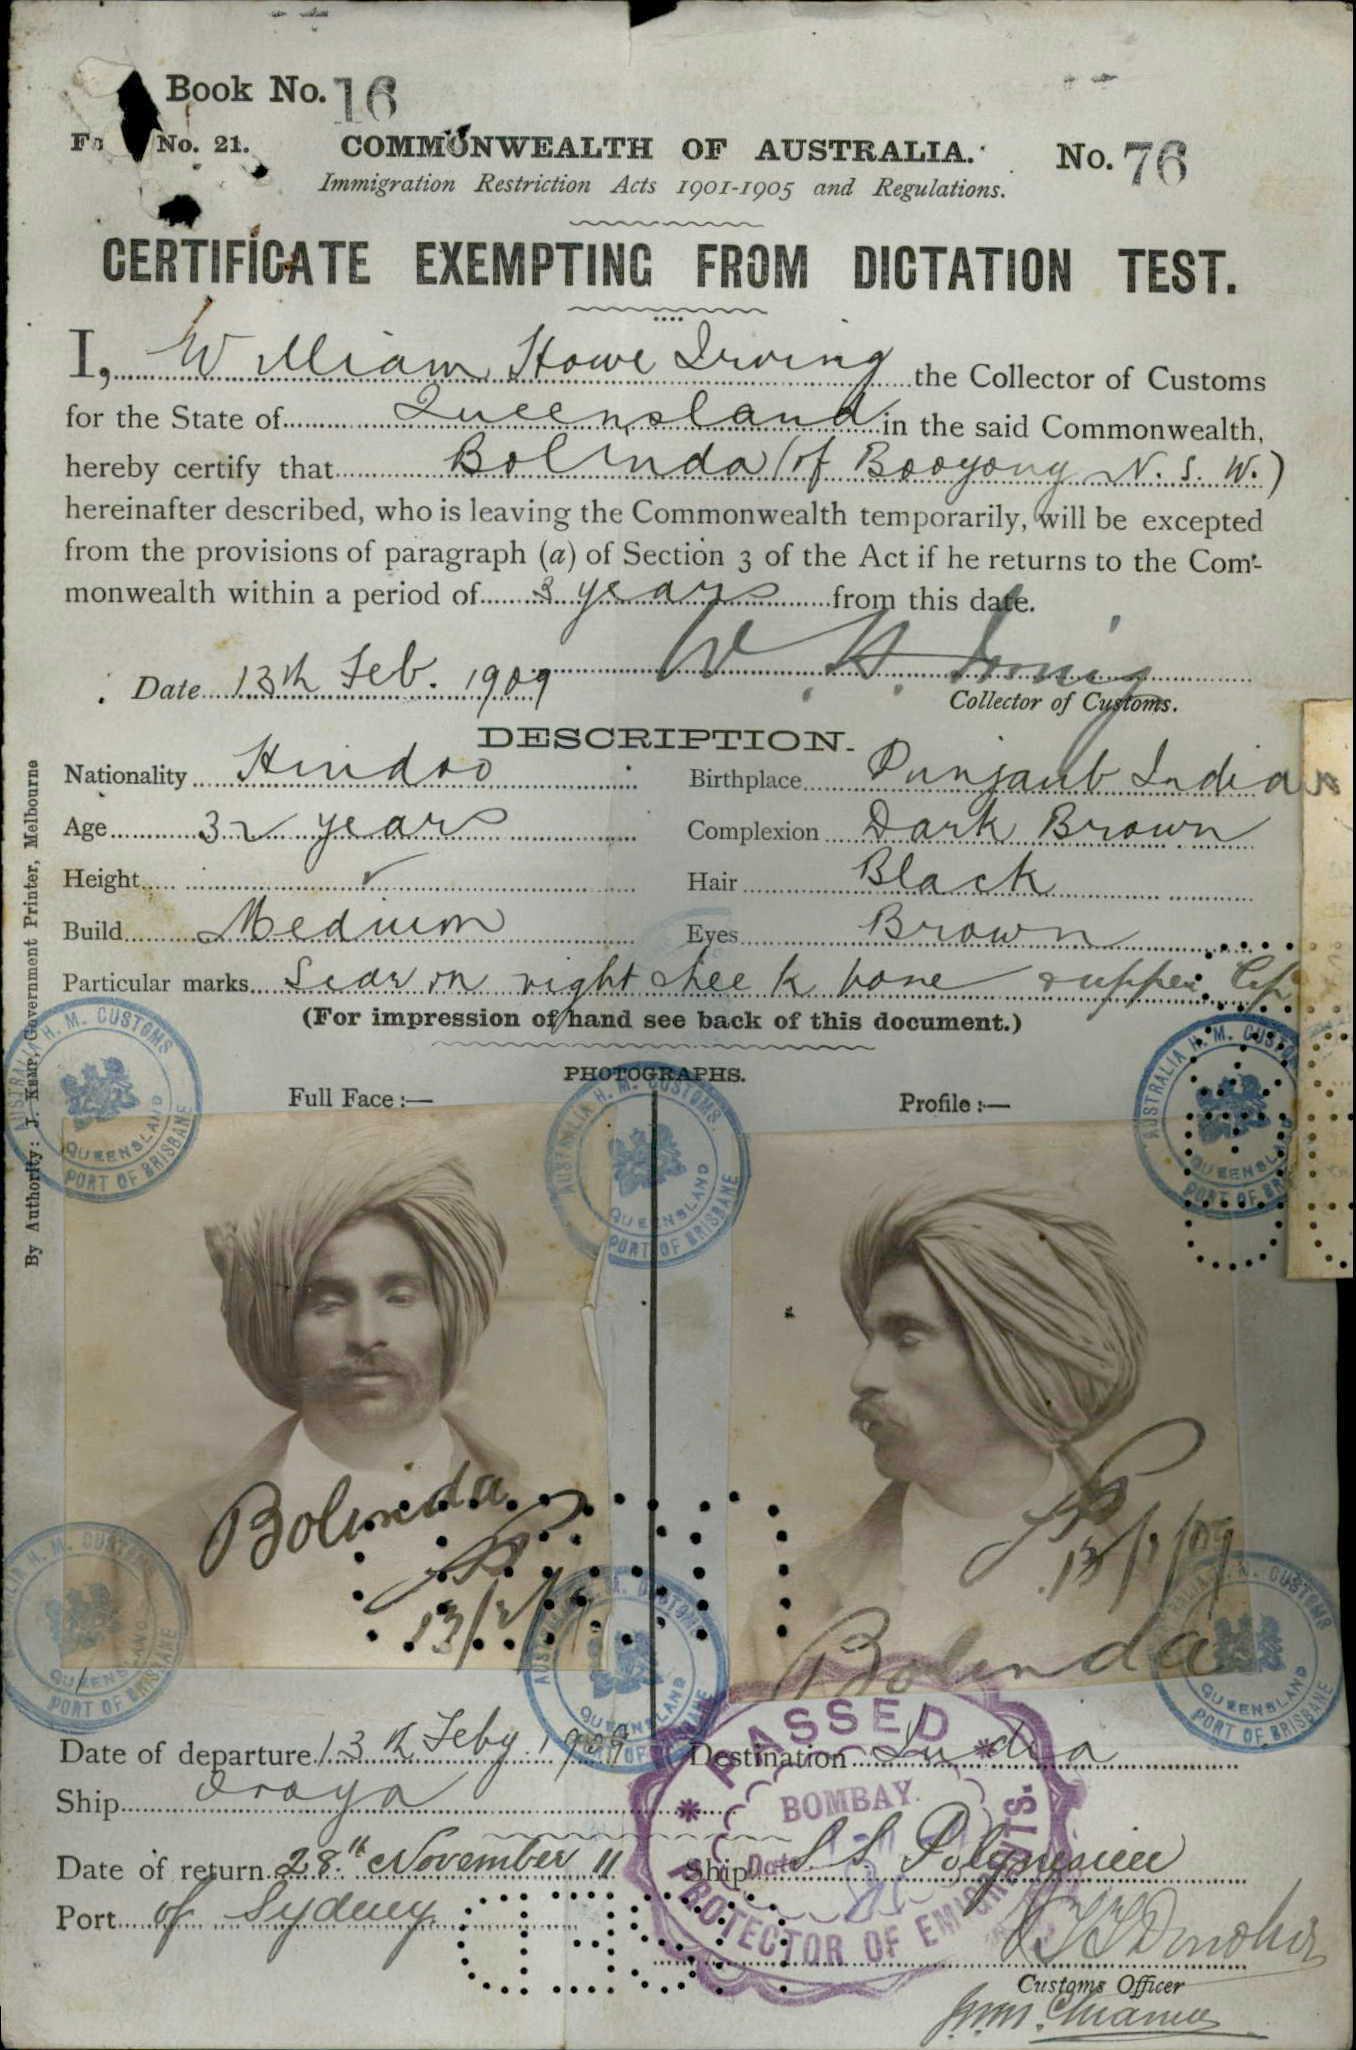 Book No. 16
No. 21.
COMMONWEALTH OF AUSTRALIA.
No. 76
Immigration Restriction Acts 1901-1905 and Regulations.
CERTIFICATE EXEMPTING FROM DICTATION TEST.
I, William Howe Irving the Collector of Customs
for the State of Queensland in the said Commonwealth,
hereby certify that Bolinda (of Booyong N. S. W.)
hereinafter described, who is leaving the Commonwealth temporarily, will be excepted
from the provisions of paragraph (a) of Section 3 of the Act if he returns to the Com-
monwealth within a period of 3 years from this date.
W. H. Irving
Date 13th Feb. 1909
Collector of Customs.
DESCRIPTION.
Nationality Hindoo Birthplace Punjaub India
Age 32 years Complexion Dark Brown
Height Hair Black
Build Medium Eyes Brown
Particular marks Scar on right cheek bone & upper lip
(For impression of hand see back of this document.)
PHOTOGRAPHS.
Full Face :— Profile :—
By Authority: J. Kemp, Government Printer, Melbourne
AUSTRALIA H. M. CUSTOMS
QUEENSLAND
PORT OF BRISBANE
AUSTRALIA H. M. CUSTOMS
QUEENSLAND
PORT OF BRISBANE
AUSTRALIA H. M. CUSTOMS
QUEENSLAND
PORT OF BRI
Bolinda
13/2/09
13/2/09
Bolinda
H. M. CUSTOMS
QUEENSLAND
PORT OF BRISBANE
QUEENSLAND
CUSTOMS
QUEENSLAND
PORT OF BRISBANE
Date of departure 13th Feby. 1909 Destination India
Ship Oroya
Date of return 28th November 11 Ship S S Polynesien
Port of Sydney
PASSED
BOMBAY.
Date
PROTECTOR OF EMIGRANTS.
Customs Officer